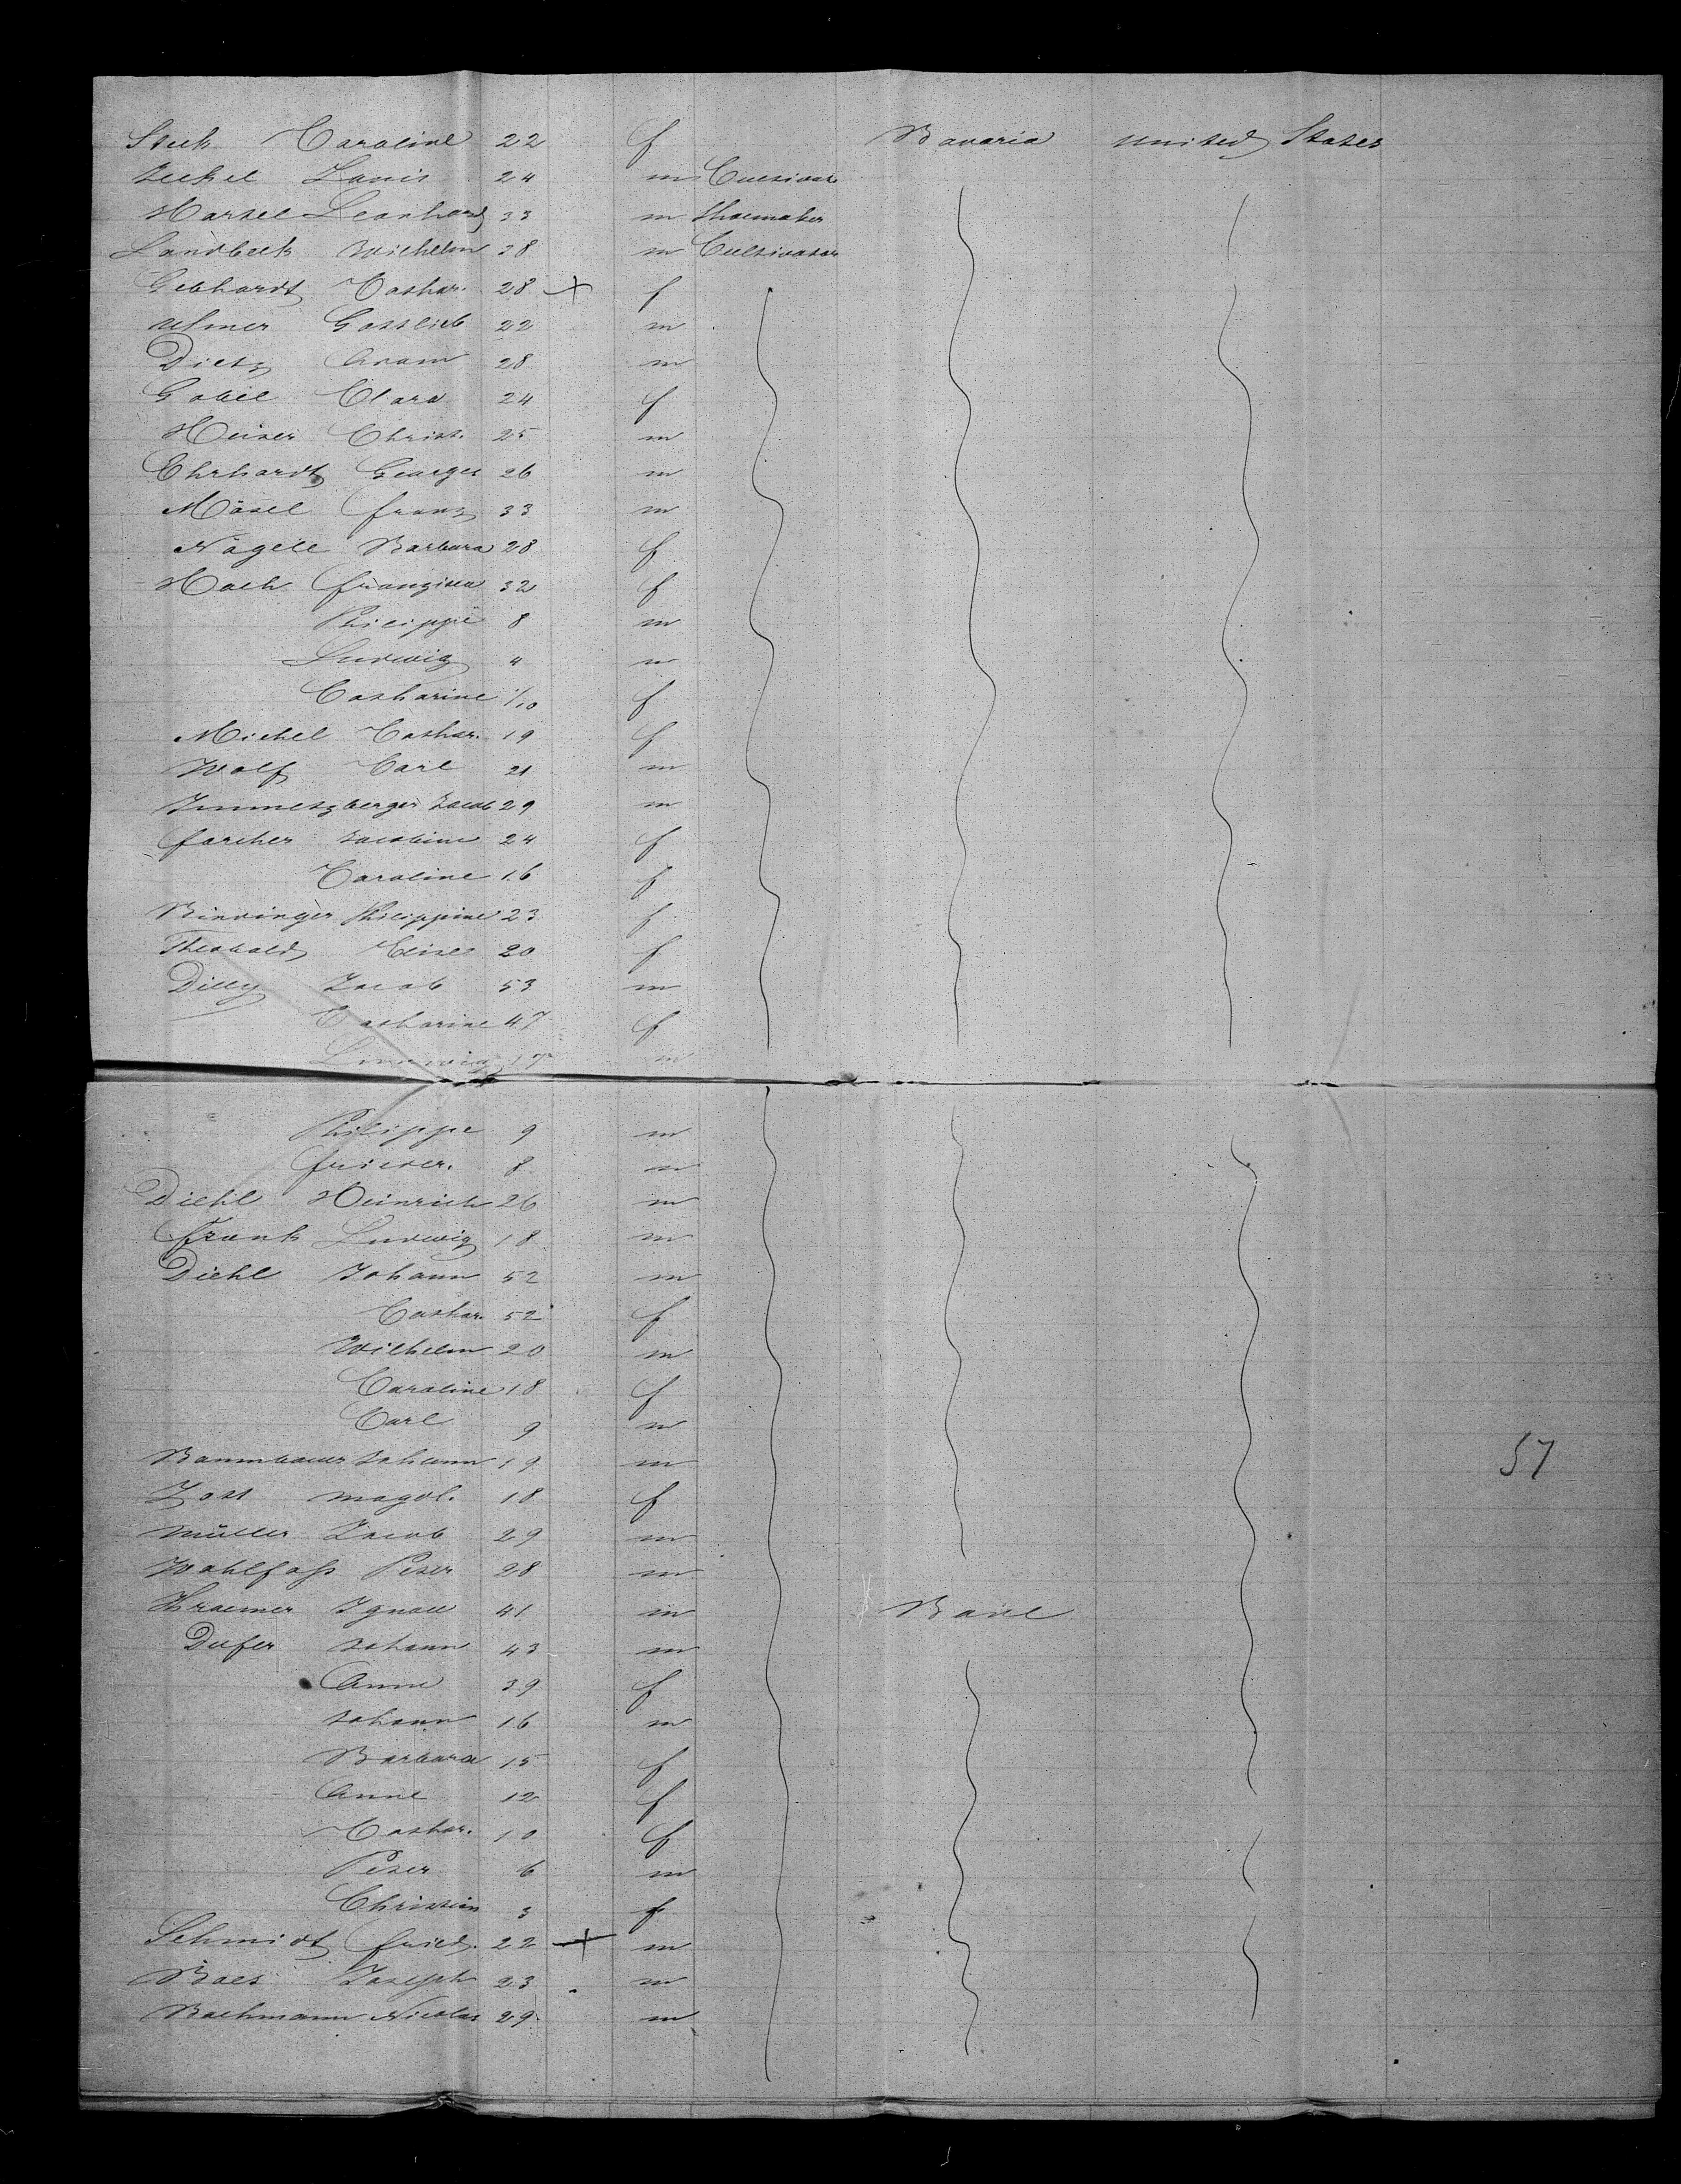 Steck Caroline 22 f Bavaria united States
Seckel Louis 24 m Cultivat.
Harsel Leonhard 33 m Shoemaker
Landbeck Wilhelm 38 m Cultivator
Gebhardt Cathar. 28 f
Ulmer Gottlieb 22 m
Dietz Adam 28 m
Gobel Clara 24 f
Heiser Christ. 25 m
Ehrhardt Georges 26 m
Mösel Franz 33 m
Nägele Barbara 28 f
Hoch Franziska 32 f
Philippe 8 m
Ludwig 4 m
Catharine 1/10 f
Michel Cathar. 19 f
Wolf Carl 21 m
Immetzberger Jacob 29 m
Forcher Jacobine 24 f
Caroline 16 f
Bindinger Philippine 23 f
Theobald Elise 20 f
Dilly Jacob 53 m
Catharine 47 f
Ludwig 17 m
Philippe 9 m
Frieder. 8 m
Diehl Heinrich 26 m
Frank Ludwig 18 m
Diehl Johann 52 m
Cathar. 52 f
Wilhelm 20 m
Caroline 18 f
Carl 9 m
Baumbauer Johann 19 m
Jost Magdl. 18 f
Müller Jacob 29 m
57
Wohlfass Peter 28 m
Kraemer Ignace 41 m Bade
Dufer Johann 43 m
Anne 39 f
Johann 16 m
Barbara 15 f
Anne 12 f
Cathar. 10 f
Peter 6 m
Christian 3 f
Schmidt Fried. 22 m
Baes Joseph 23 m
Bachmann Nicolas 29 m